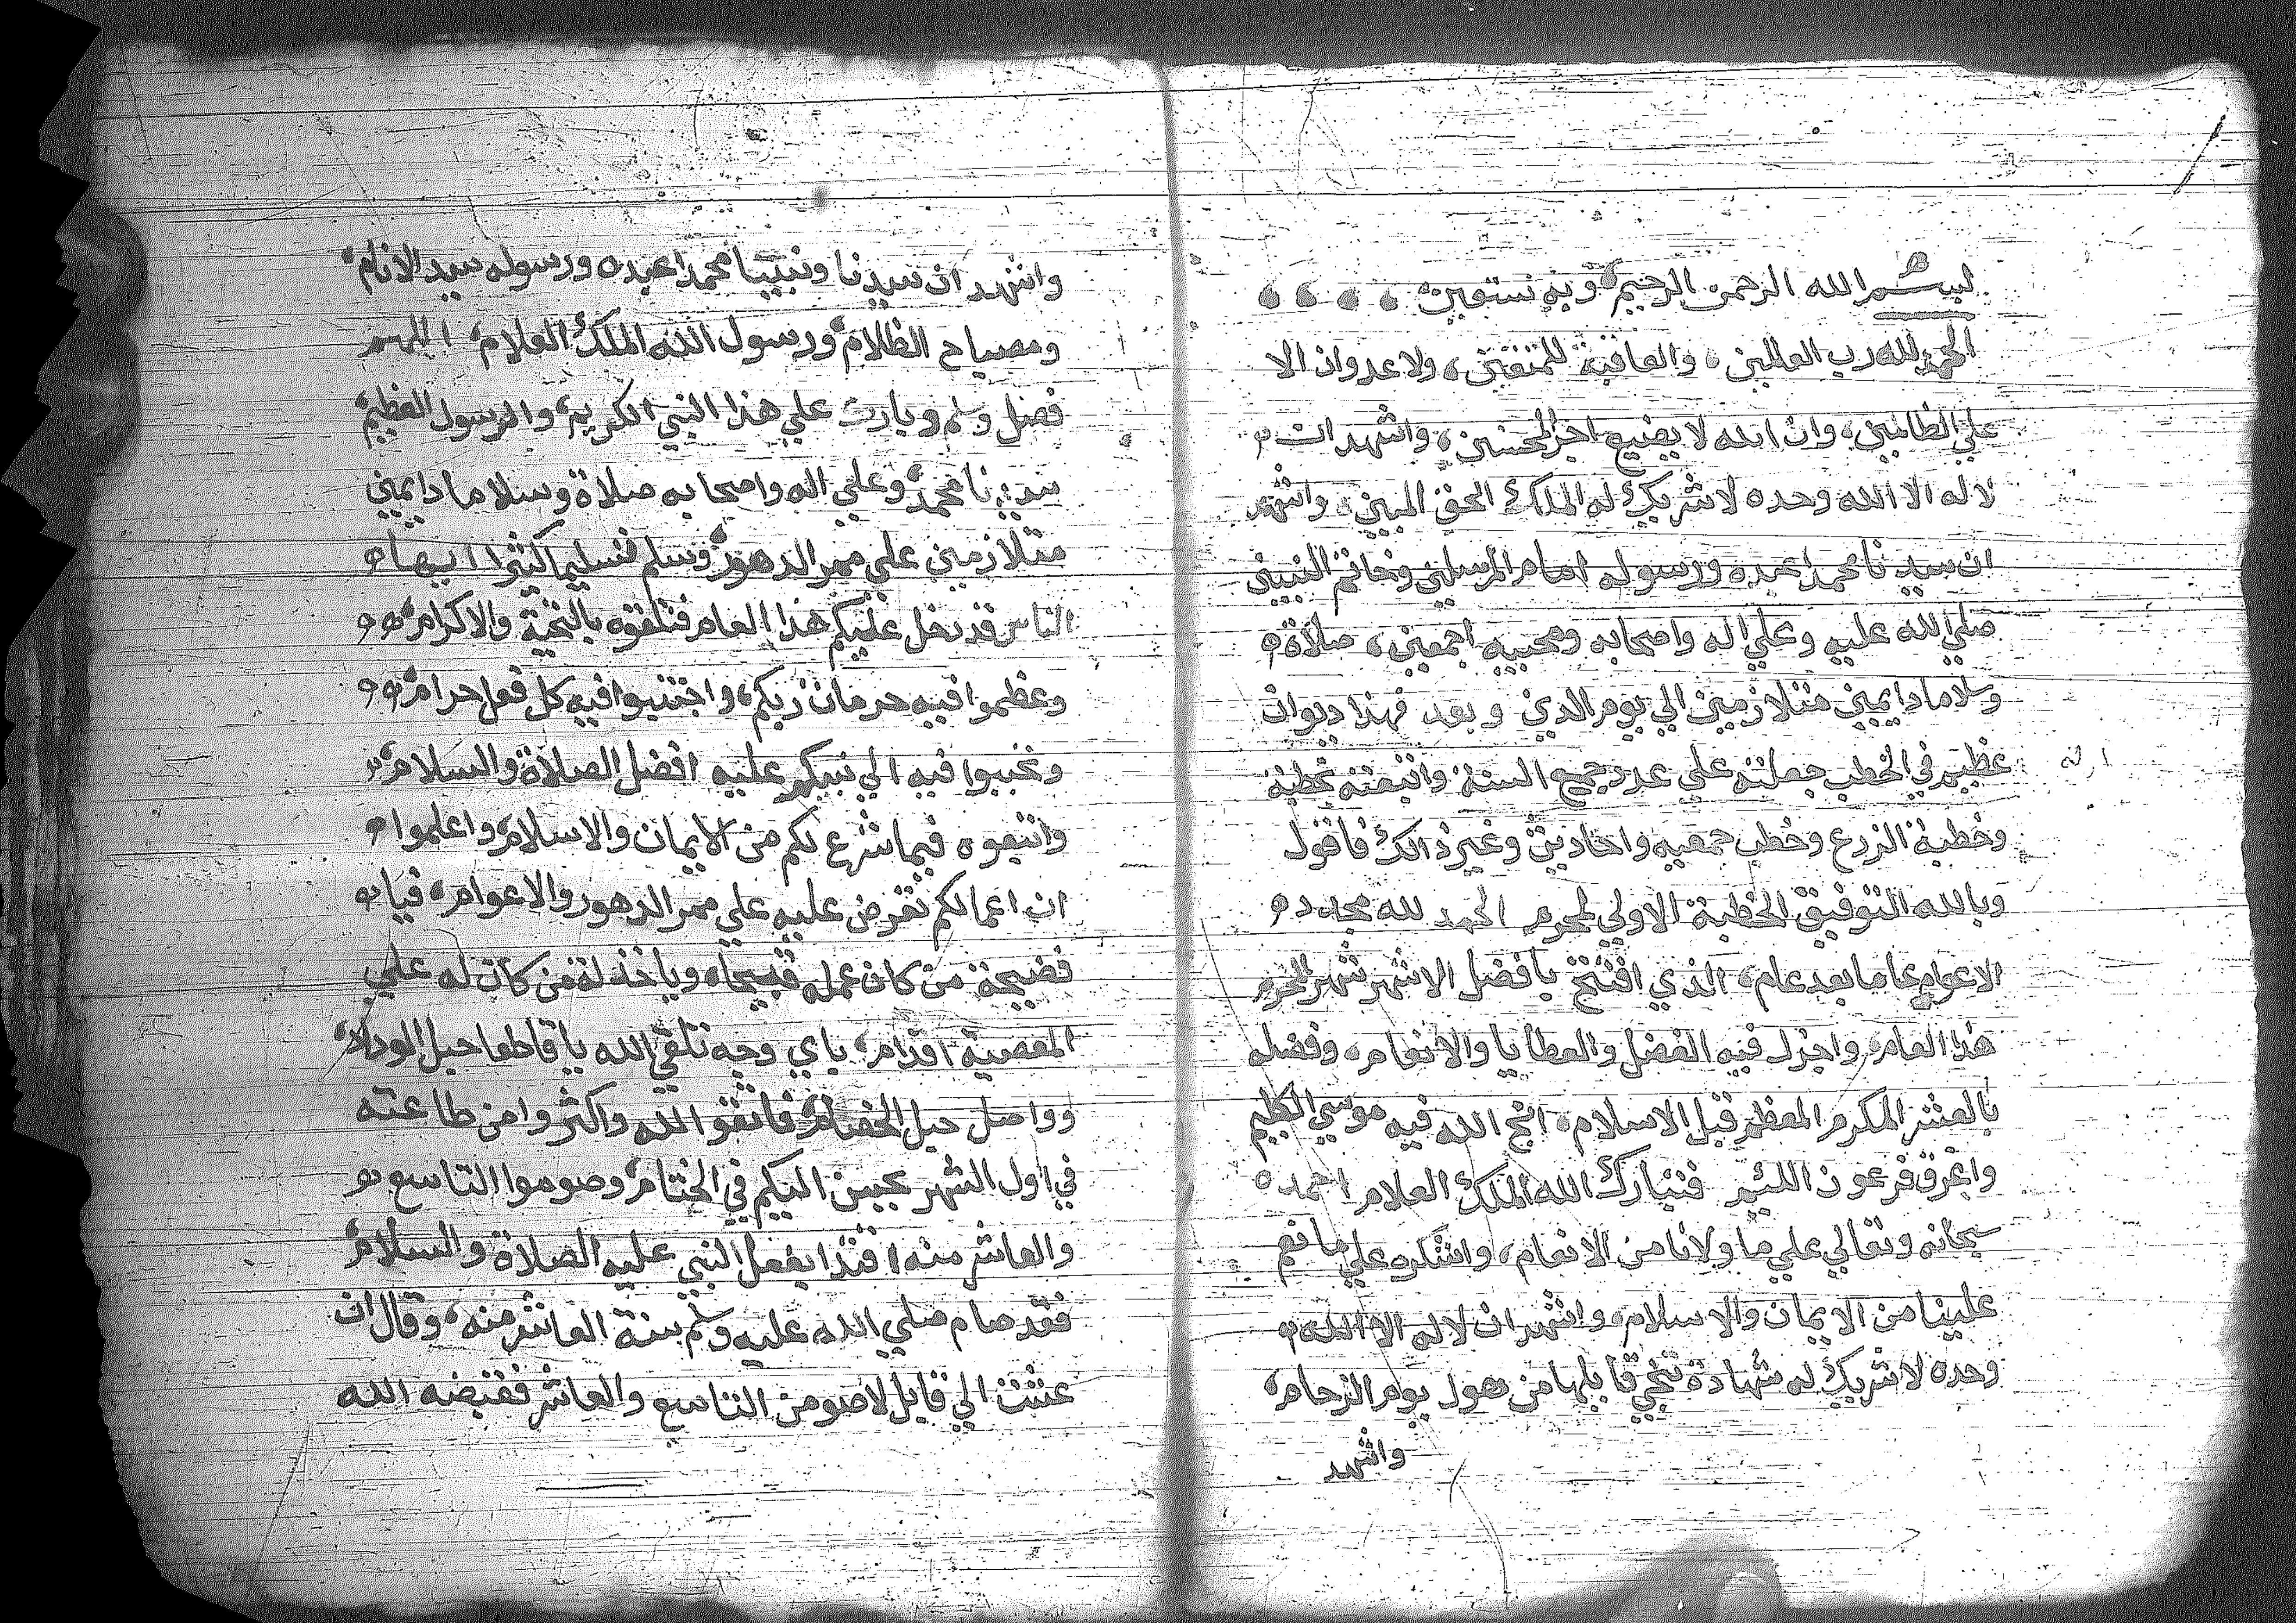 بسم الله الرحمن الرحيم وبه نستعين
الحمد لله رب العالمين، والعاقبة للمتقين، ولا عدوان الا
علي الظالمين، وان الله لا يضيع اجر المحسنين، واشهد ان
لا اله الا الله وحده لا شريك له الملك الحق المبين، واشهد
ان سيدنا محمدا عبده ورسوله امام المرسلين وخاتم النبيين
صلي الله عليه وعلي اله واصحابه ومحبيه اجمعين، صلاة
وسلاما دايمين متلازمين الي يوم الدين وبعد فهذا ديوان
عظيم في الخطب جعلته علي عدد جمع السنة واتبعته بخطبة
وخطبة الزرع وخطب جمعيه واحاديث وغير ذالك فاقول
وبالله التوفيق الخطبة الاولي لمحرم الحمد لله مجدد
الاعوام عاما بعد عام، الذي افتتح بافضل الاشهر شهر المحرم
هذا العام، واجزل فيه الفضل والعطايا والانعام، وفضله
بالعشر المكرم المعظم قبل الاسلام، انجي الله فيه موسي الكليم
واغرق فرعون اللئيم فتبارك الله الملك العلام احمده
سبحانه وتعالي علي ما ولانا من الانعام، واشكره علي ما نعم
علينا من الايمان والاسلام، واشهد ان لا اله الا الله
وحده لا شريك له شهادة تنجي قايلها من هول يوم الزحام،
واشهد
واشهد ان سيدنا ونبينا محمدا عبده ورسوله سيد الانام،
ومصباح الظلام، ورسول الله الملك العلام، اللهم
فصل وسلم وبارك علي هذا النبي الكريم، والرسول العظيم،
سيدنا محمد، وعلي اله واصحابه صلاة وسلاما دايمين
متلازمين علي ممر الدهور، وسلم تسليما كثيرا ايها
الناس قد دخل عليكم هذا العام فتلقوه بالتحية والاكرام،
وعظموا فيه حرمات ربكم، واجتنبوا فيه كل فعل حرام،
وتحببوا فيه الي نبيكم عليه افضل الصلاة والسلام،
واتبعوه فيما شرع لكم من الايمان والاسلام، واعلموا
ان اعمالكم تعرض عليه علي ممر الدهور والاعوام، فيا
فضيحة من كان عمله قبيحا، ويا خذلة من كان له علي
المعصية اقدام، باي وجه تلقي الله يا قاطعا حبل الوداد،
وواصل حبل الخصام، فاتقوا الله واكثروا من طاعته
في اول الشهر يحسن اليكم في الختام، وصوموا التاسع
والعاشر منه اقتدا بفعل النبي عليه الصلاة والسلام،
فقد صام صلي الله عليه وسلم بسنة العاشر منه، وقال ان
عشت الي قابل لاصومن التاسع والعاشر فقبضه الله